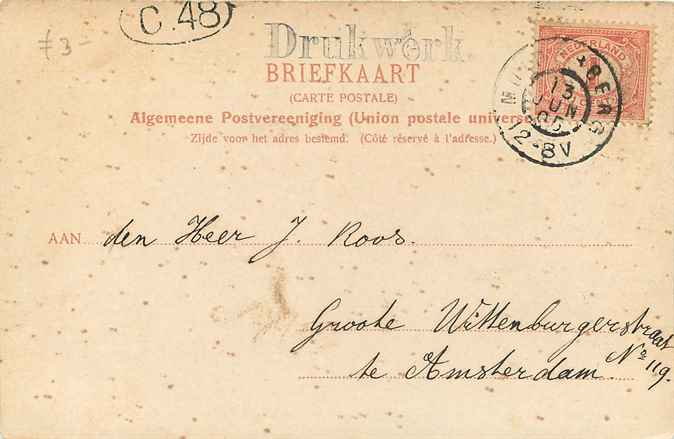 ƒ 3-
C.48
Drukwerk.
BRIEFKAART
(CARTE POSTALE)
Algemeene Postvereeniging (Union postale univers
Zijde voor het adres bestemd. (Côté réservé à l'adresse.)
NEDERLAND
BERG
13
JUN
05
12-8V
AAN den Heer J. Roos.
Groote Wittenburgerstraat
No 119.
te Amsterdam.